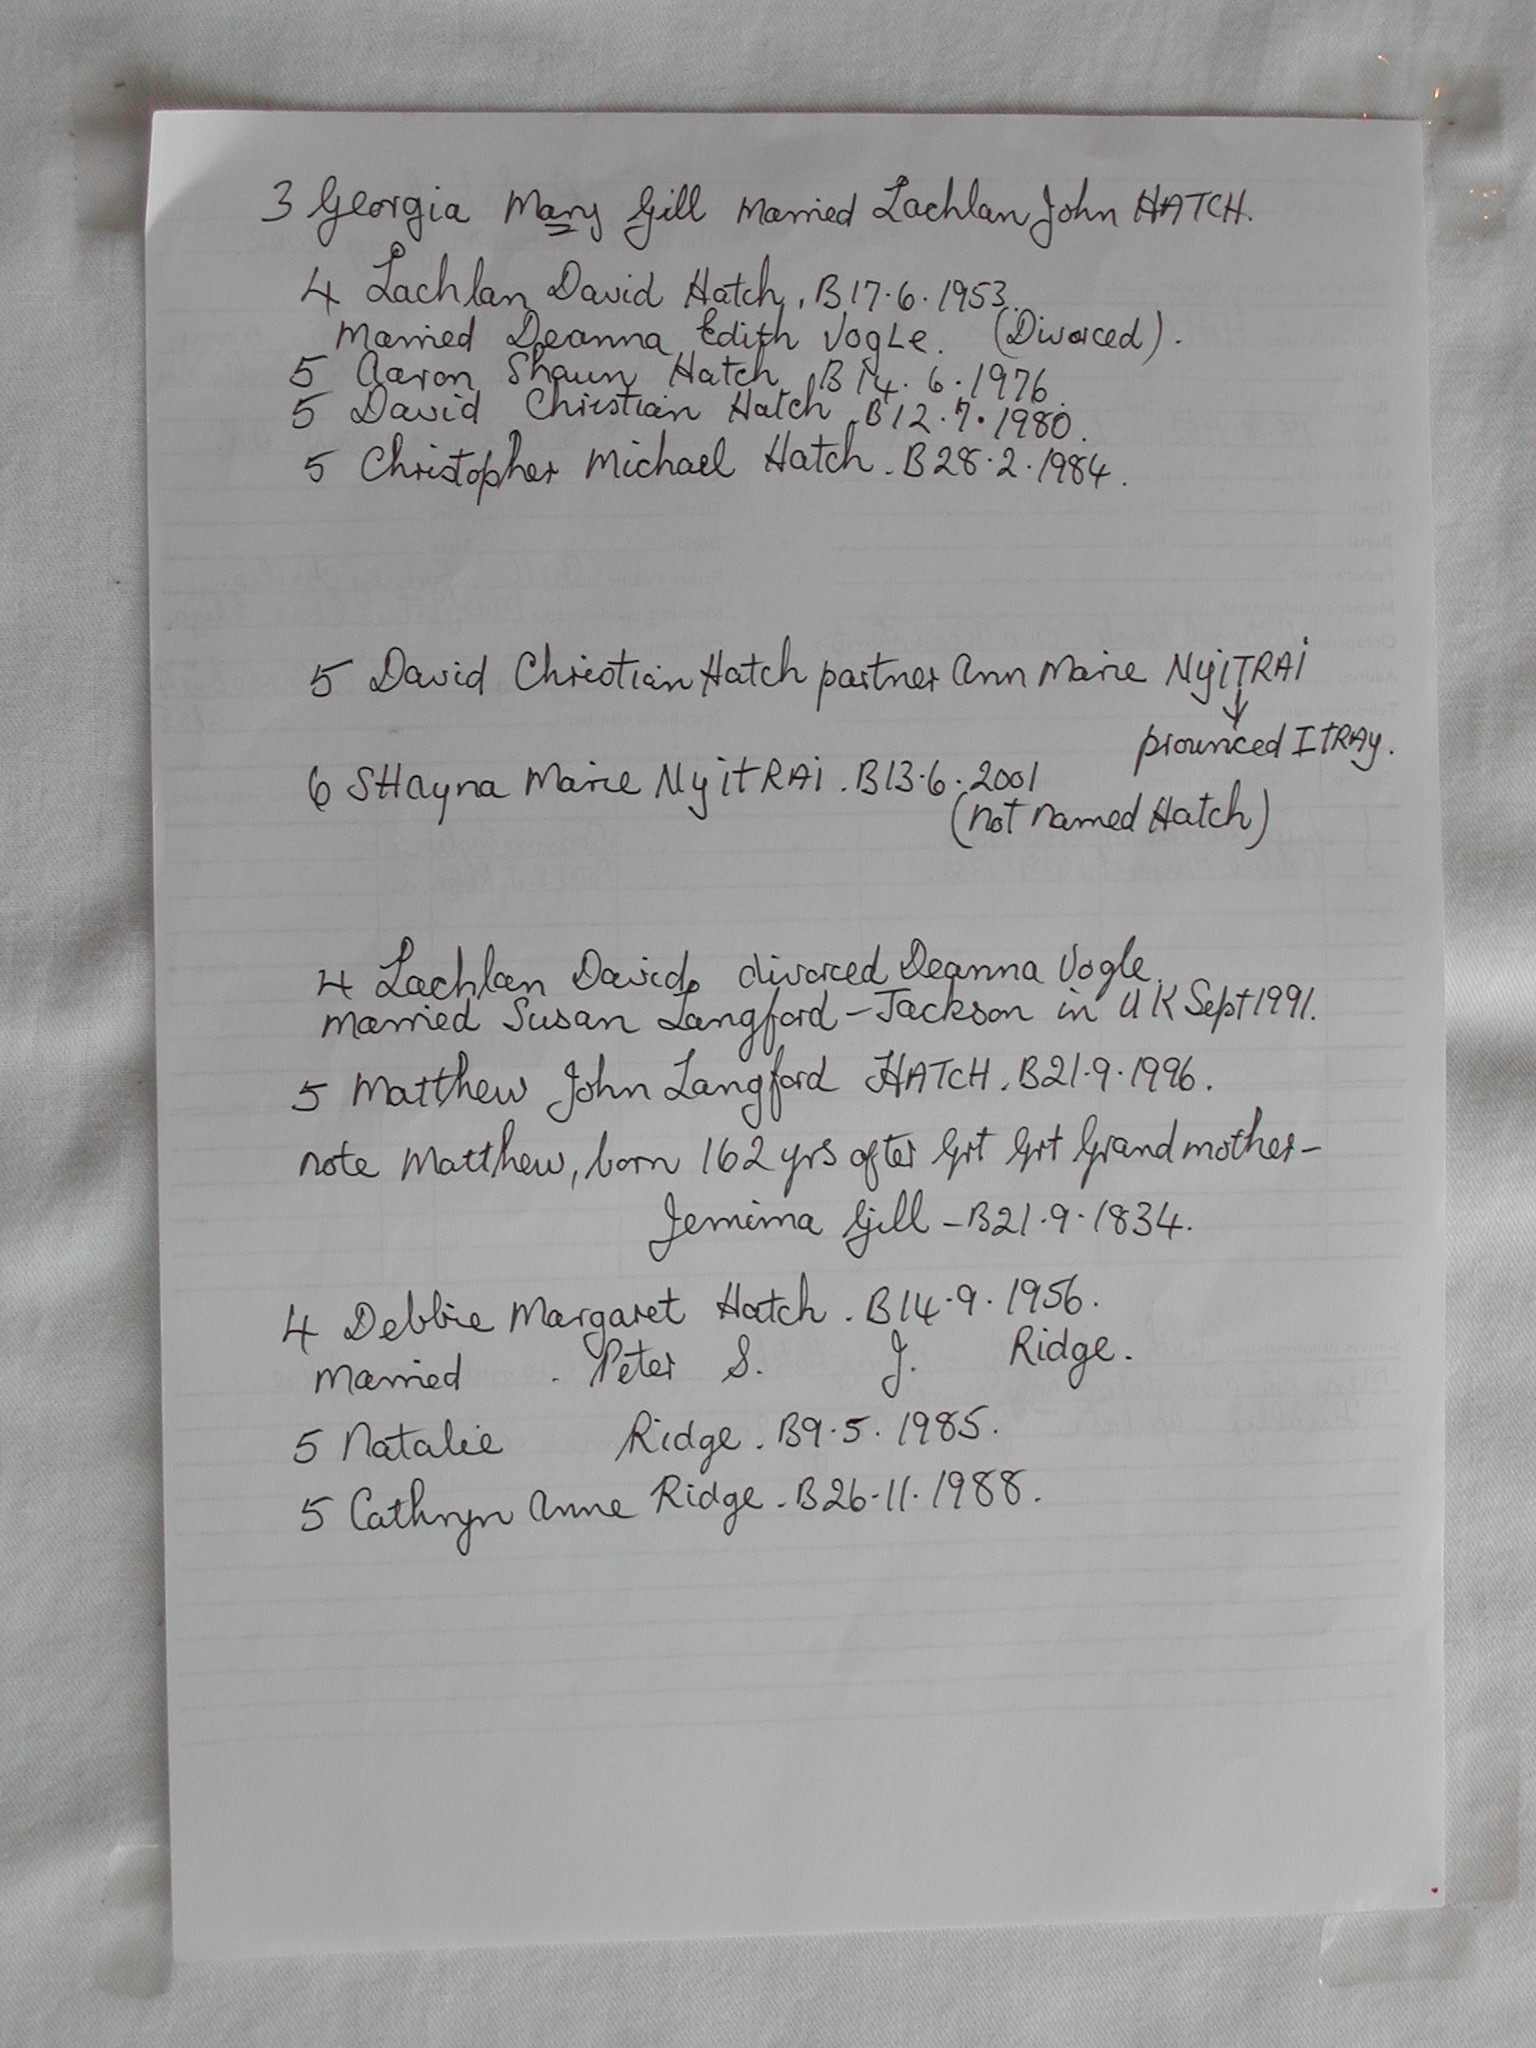 3 Georgia Mary Gill Married Lachlan John HATCH.
4 Lachlan David Hatch. B17.6.1953.
Married Deanna Edith Vogle. (Divorced).
5 Aaron Shaun Hatch B14.6.1976.
5 David Christian Hatch. B12.7.1980.
5 Christopher Michael Hatch. B28.2.1984.
5 David Christian Hatch partner Ann Marie NyiTRAi
↓
prounced ITRAy.
6 SHayna Marie NyitRAi. B13.6.2001
(not named Hatch)
4 Lachlan David, divorced Deanna Vogle.
Married Susan Langford-Jackson in UK Sept 1991.
5 Matthew John Langford HATCH. B21.9.1996.
note Matthew, born 162 yrs after Grt Grt Grandmother-
Jemima Gill - B21.9.1834.
4 Debbie Margaret Hatch. B14.9.1956.
Married. Peter S. J. Ridge.
5 Natalie Ridge. B9.5.1985.
5 Cathryn Anne Ridge. B26.11.1988.